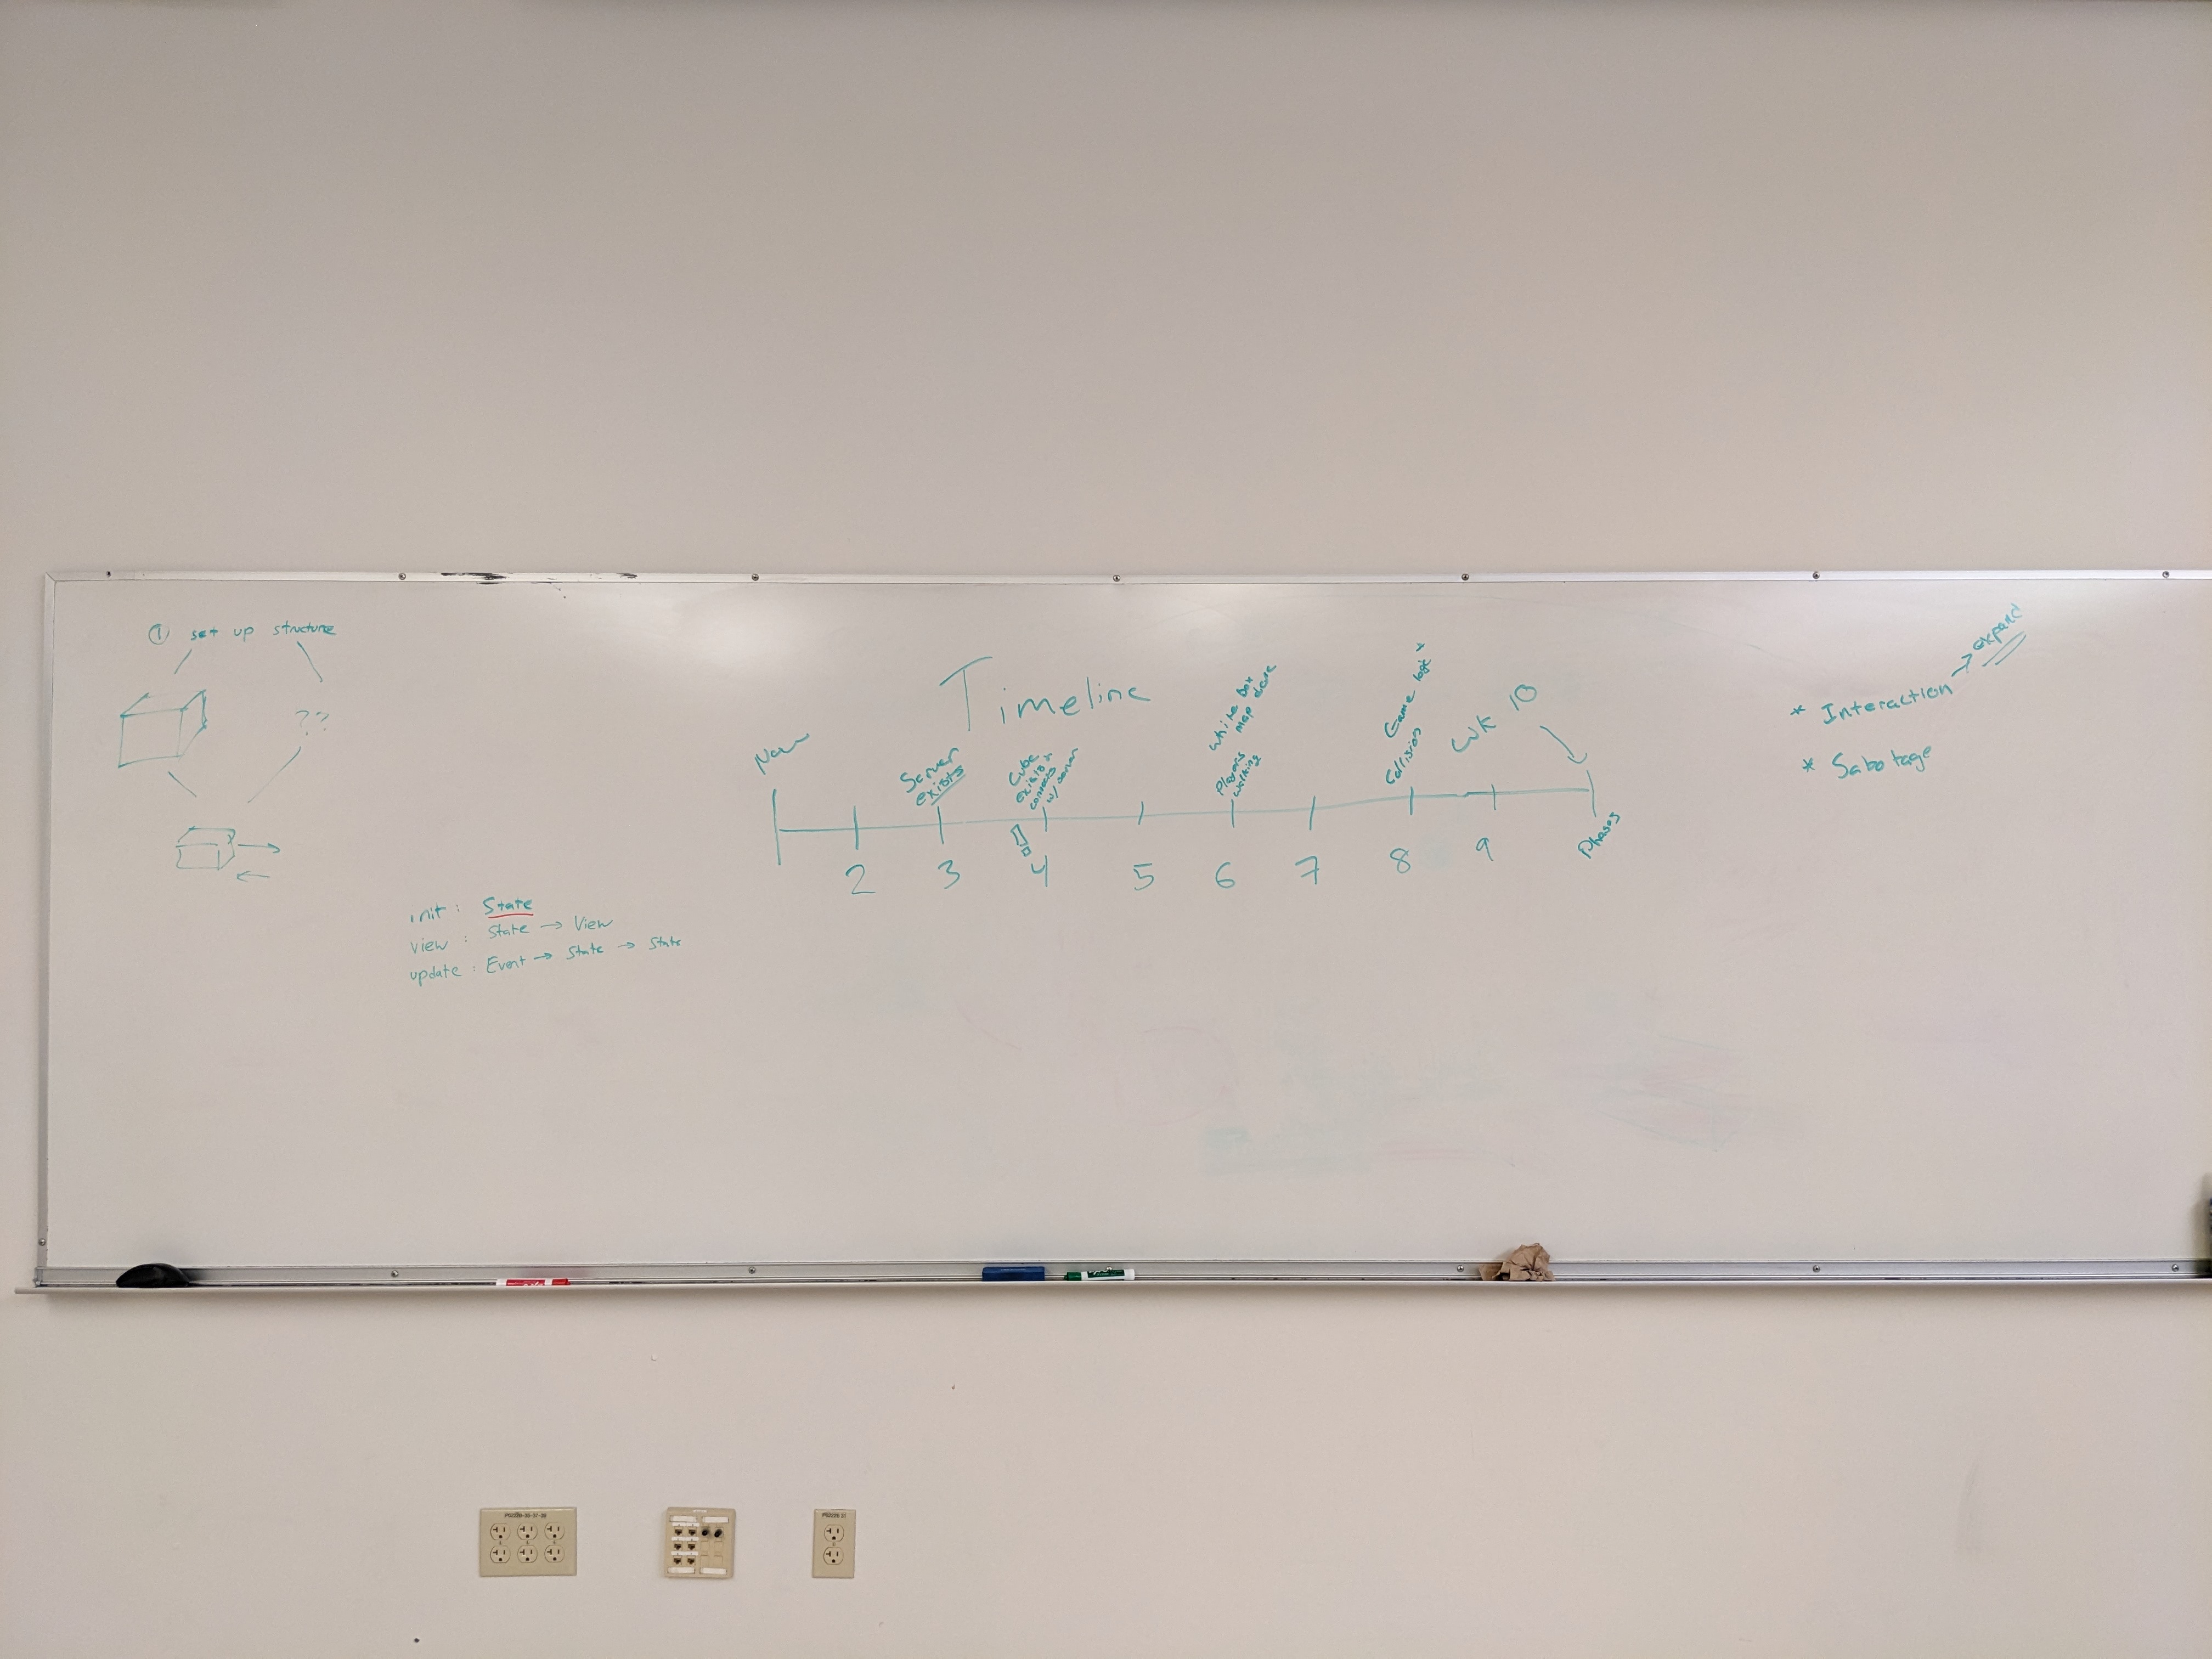 ① set up structure
??
init : State
view : State → View
update : Event → State → State
Timeline
Now
Server
exists
Cube
exists +
connects
w/ server
White box
map done
Players
walking
Game logic *
Collision
WK 10
Phases
2 3 4 5 6 7 8 9
* Interaction → expand
* Sabotage